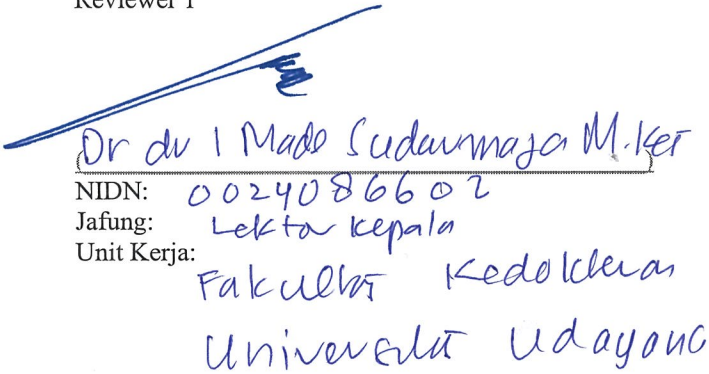 Reviewer 1
(Dr dr I Made Sudarmaja M.Kes)
NIDN: 0024086602
Jafung: Lektor Kepala
Unit Kerja:
Fakultas Kedokteran
Universitas Udayana